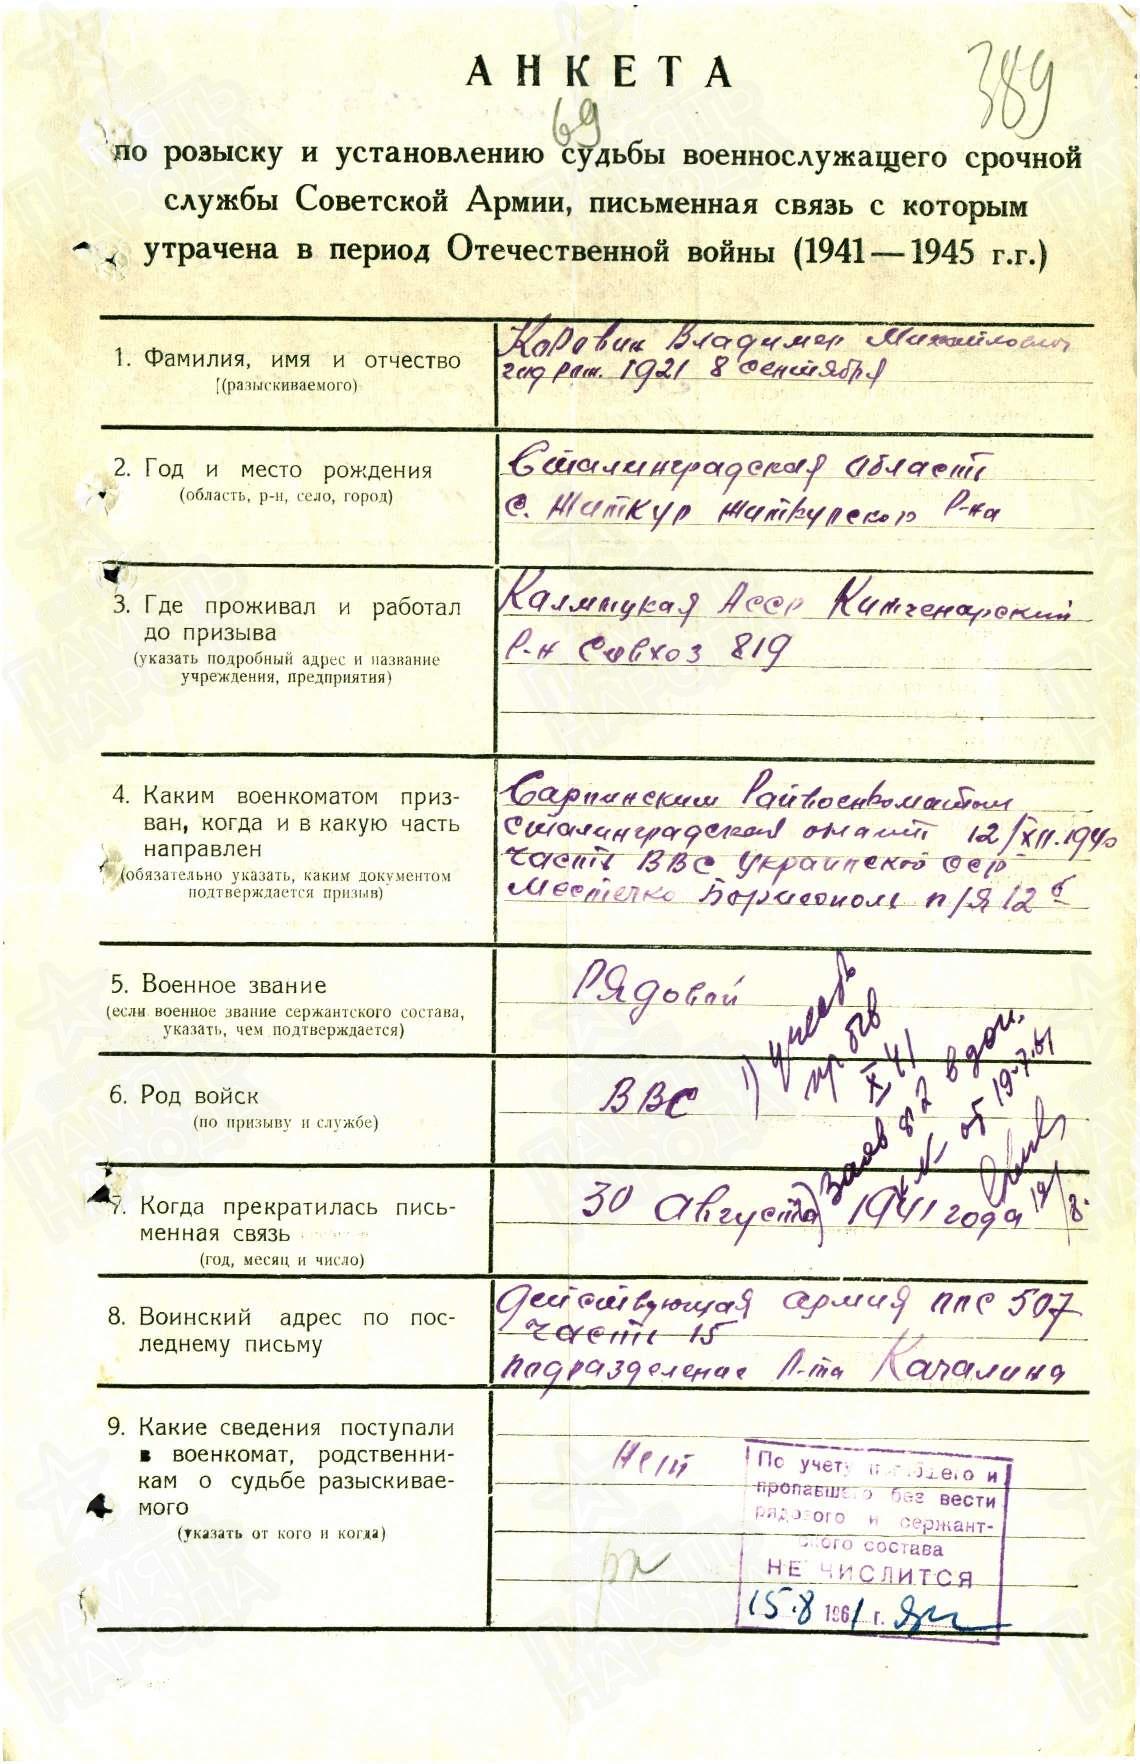 АНКЕТА
389
69
по розыску и установлению судьбы военнослужащего срочной
службы Советской Армии, письменная связь с которым
утрачена в период Отечественной войны (1941—1945 г.г.)
1. Фамилия, имя и отчество
(разыскиваемого)
Коровин Владимер Михайлович
год рож. 1921 8 сентября
2. Год и место рождения
(область, р-н, село, город)
Сталинградская области
с. Житкур Житкурского р-на
3. Где проживал и работал
до призыва
(указать подробный адрес и название
учреждения, предприятия)
Калмыцкая Асср Китченерский
Р-н Совхоз 819
4. Каким военкоматом приз-
ван, когда и в какую часть
направлен
(обязательно указать, каким документом
подтверждается призыв)
Сарпинским Райвоенкоматом
Сталинградская области 12/XII.1940
часть ВВС Украинской сср
Местечко Борисополь п/я 12 б
5. Военное звание
(если военное звание сержантского состава,
указать, чем подтверждается)
Рядовой
6. Род войск
(по призыву и службе)
ВВС
1)
X 41
2)
от 19.7.61
19/8.
7. Когда прекратилась пись-
менная связь
(год, месяц и число)
30 августа 1941 года
8. Воинский адрес по пос-
леднему письму
Действующая армия ппс 507
часть 15
подразделение Л-та Качалина
9. Какие сведения поступали
в военкомат, родственни-
кам о судьбе разыскивае-
мого
(указать от кого и когда)
Нет
По учету погибшего и
пропавшего без вести
рядового и сержант-
ского состава
НЕ ЧИСЛИТСЯ
15.8 1961 г.
ПАМЯТЬ
НАРОДА